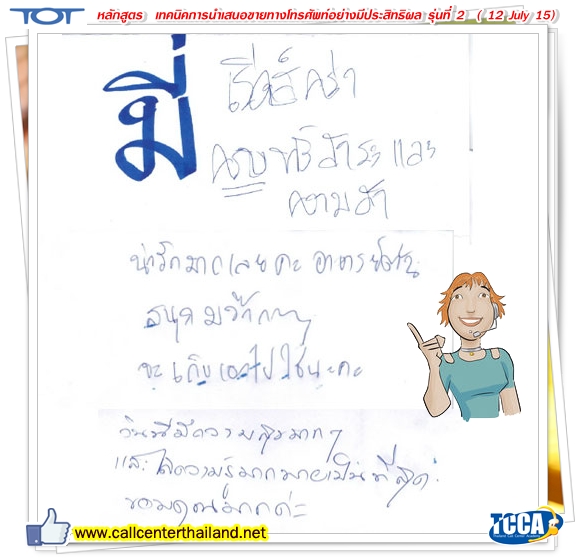 TOT หลักสูตร เทคนิคการนำเสนอขายทางโทรศัพท์อย่างมีประสิทธิผล รุ่นที่ 2 ( 12 July 15)
มี
ครบทั้งสาระและ
ความฮา
น่ารักมากเลยคะ อาจารย์
สนุกมากๆ
จะเก็บเอาไปใช้นะคะ
วันนี้มีความสุขมากๆ
และได้ความรู้มากมายเป็นที่สุด
ขอบคุณมากค่ะ
www.callcenterthailand.net
TCCA